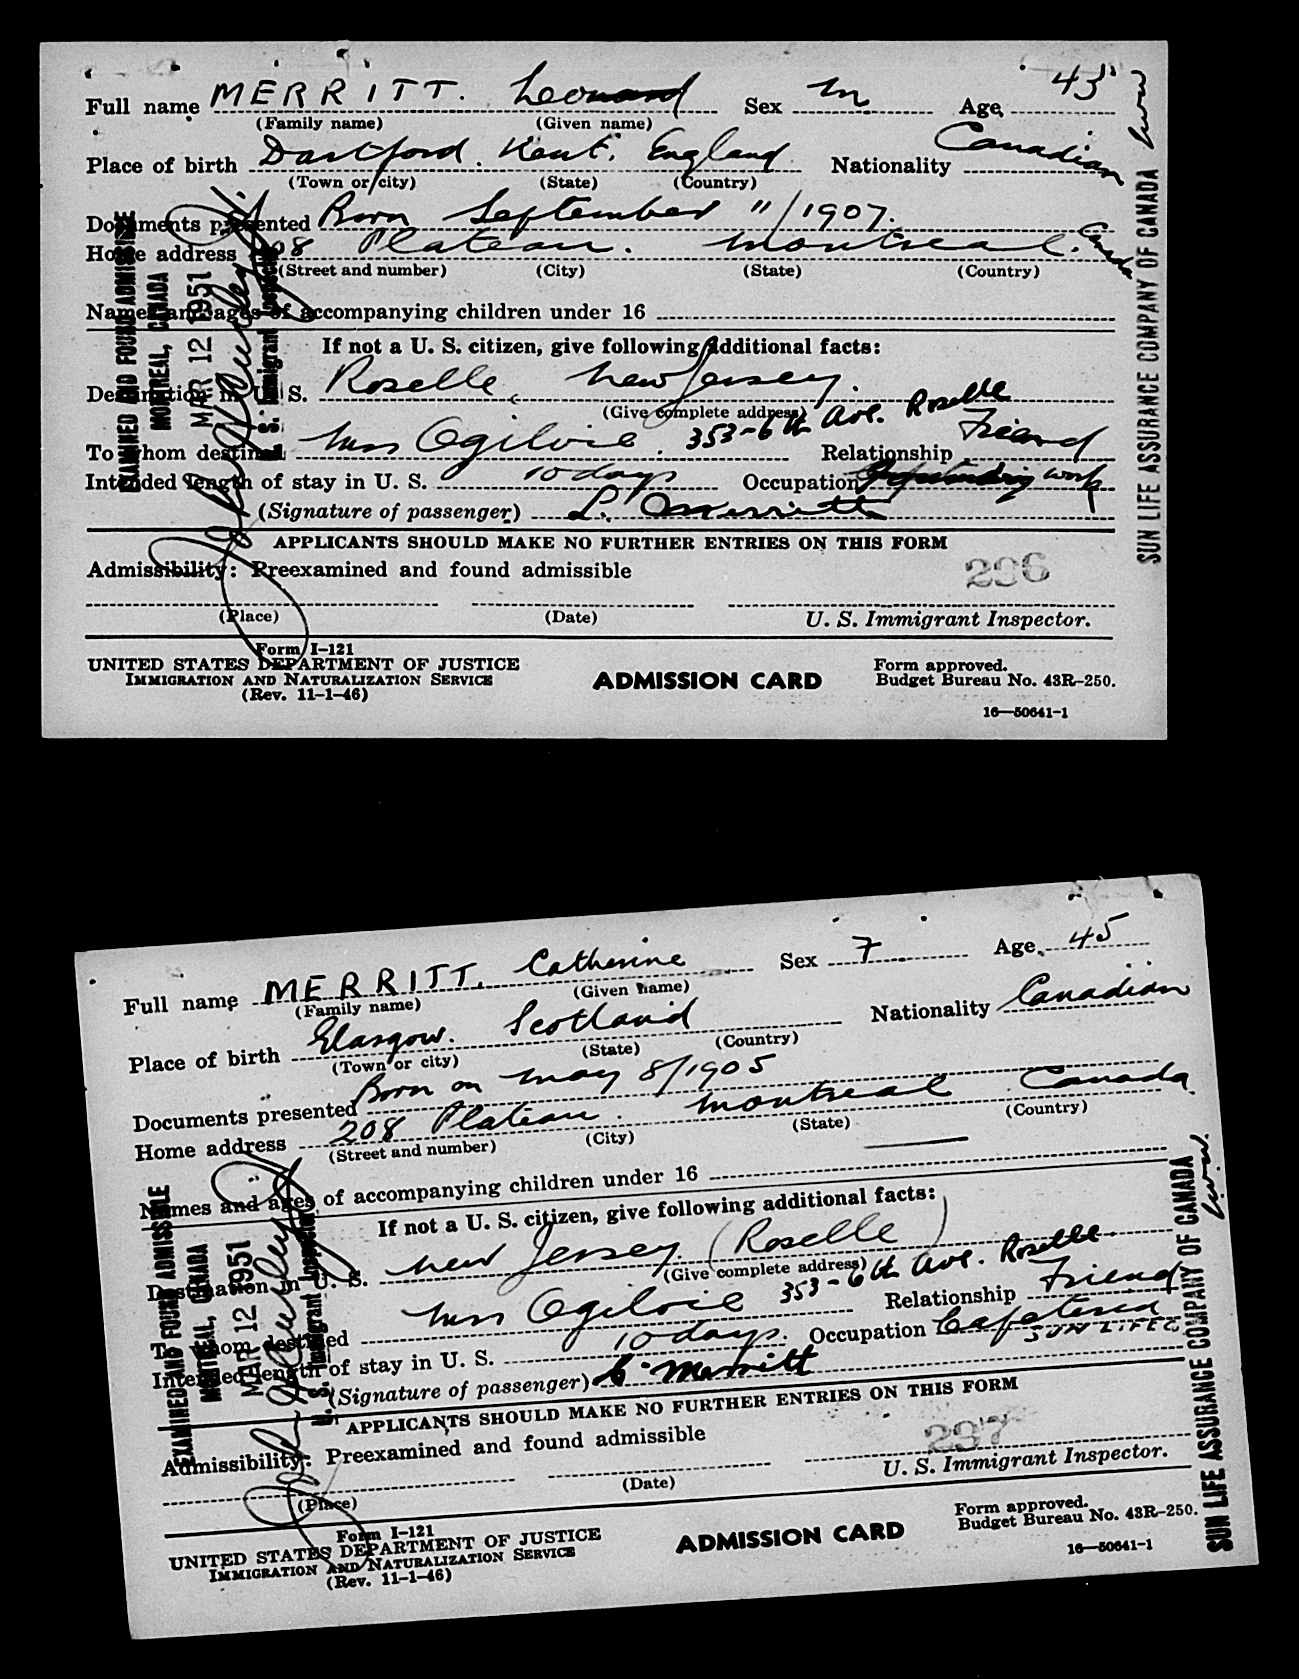 Full name MERRITT. Leonard Sex M Age 43
(Family name) (Given name)
Place of birth Dartford. Kent. England Nationality Canadian
(Town or city) (State) (Country)
Documents presented Born September 11/1907.
Home address 208 Plateau. Montreal. Canada
(Street and number) (City) (State) (Country)
Names and ages of accompanying children under 16
If not a U. S. citizen, give following additional facts:
Destination in U. S. Roselle, New Jersey.
(Give complete address) 353-6th Ave. Roselle
To whom destined Miss Ogilvie. Relationship Friend
Intended length of stay in U. S. 10 days Occupation work
(Signature of passenger) L. Merritt
APPLICANTS SHOULD MAKE NO FURTHER ENTRIES ON THIS FORM
Admissibility: Preexamined and found admissible
296
(Place) (Date) U. S. Immigrant Inspector.
Form I-121
UNITED STATES DEPARTMENT OF JUSTICE
IMMIGRATION AND NATURALIZATION SERVICE
(Rev. 11-1-46)
ADMISSION CARD
Form approved.
Budget Bureau No. 43R-250.
16—50641-1
EXAMINED AND FOUND ADMISSIBLE
MONTREAL, CANADA
MAR 12 1951
U. S. Immigrant Inspector
SUN LIFE ASSURANCE COMPANY OF CANADA
Full name MERRITT. Catherine Sex F Age 45
(Family name) (Given name)
Place of birth Glasgow. Scotland Nationality Canadian
(Town or city) (State) (Country)
Documents presented Born on May 8/1905
Home address 208 Plateau. Montreal Canada
(Street and number) (City) (State) (Country)
Names and ages of accompanying children under 16
If not a U. S. citizen, give following additional facts:
Destination in U. S. New Jersey (Roselle)
(Give complete address) 353-6th Ave. Roselle
To whom destined Miss Ogilvie Relationship Friend
Intended length of stay in U. S. 10 days. Occupation Cafeteria
SUN LIFE
(Signature of passenger) C. Merritt
APPLICANTS SHOULD MAKE NO FURTHER ENTRIES ON THIS FORM
Admissibility: Preexamined and found admissible
297
(Place) (Date) U. S. Immigrant Inspector.
Form I-121
UNITED STATES DEPARTMENT OF JUSTICE
IMMIGRATION AND NATURALIZATION SERVICE
(Rev. 11-1-46)
ADMISSION CARD
Form approved.
Budget Bureau No. 43R-250.
16—50641-1
EXAMINED AND FOUND ADMISSIBLE
MONTREAL, CANADA
MAR 12 1951
U. S. Immigrant Inspector
SUN LIFE ASSURANCE COMPANY OF CANADA